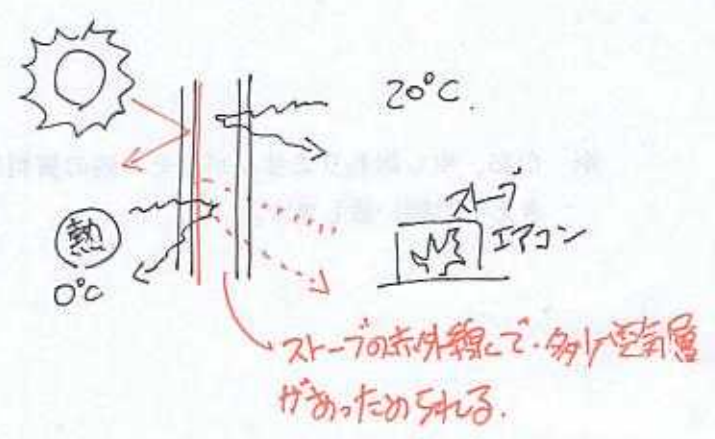 20°C.
ストーブ
エアコン
熱
0°C
ストーブの赤外線で、多少空気層
があっためられる.